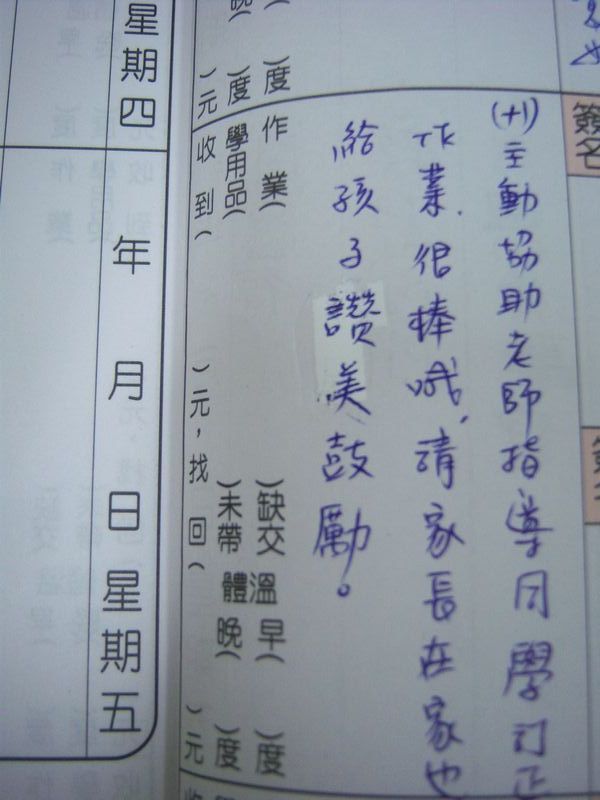 (+1)主動協助老師指導同學訂正
作業,很棒哦,請家長在家也
給孩子讚美鼓勵。
作業( )缺交
學用品( )未帶
收到( )元,找回( )元
體溫早( )度
晚( )度
)度
)度
)元
簽名
星期四
年月日星期五